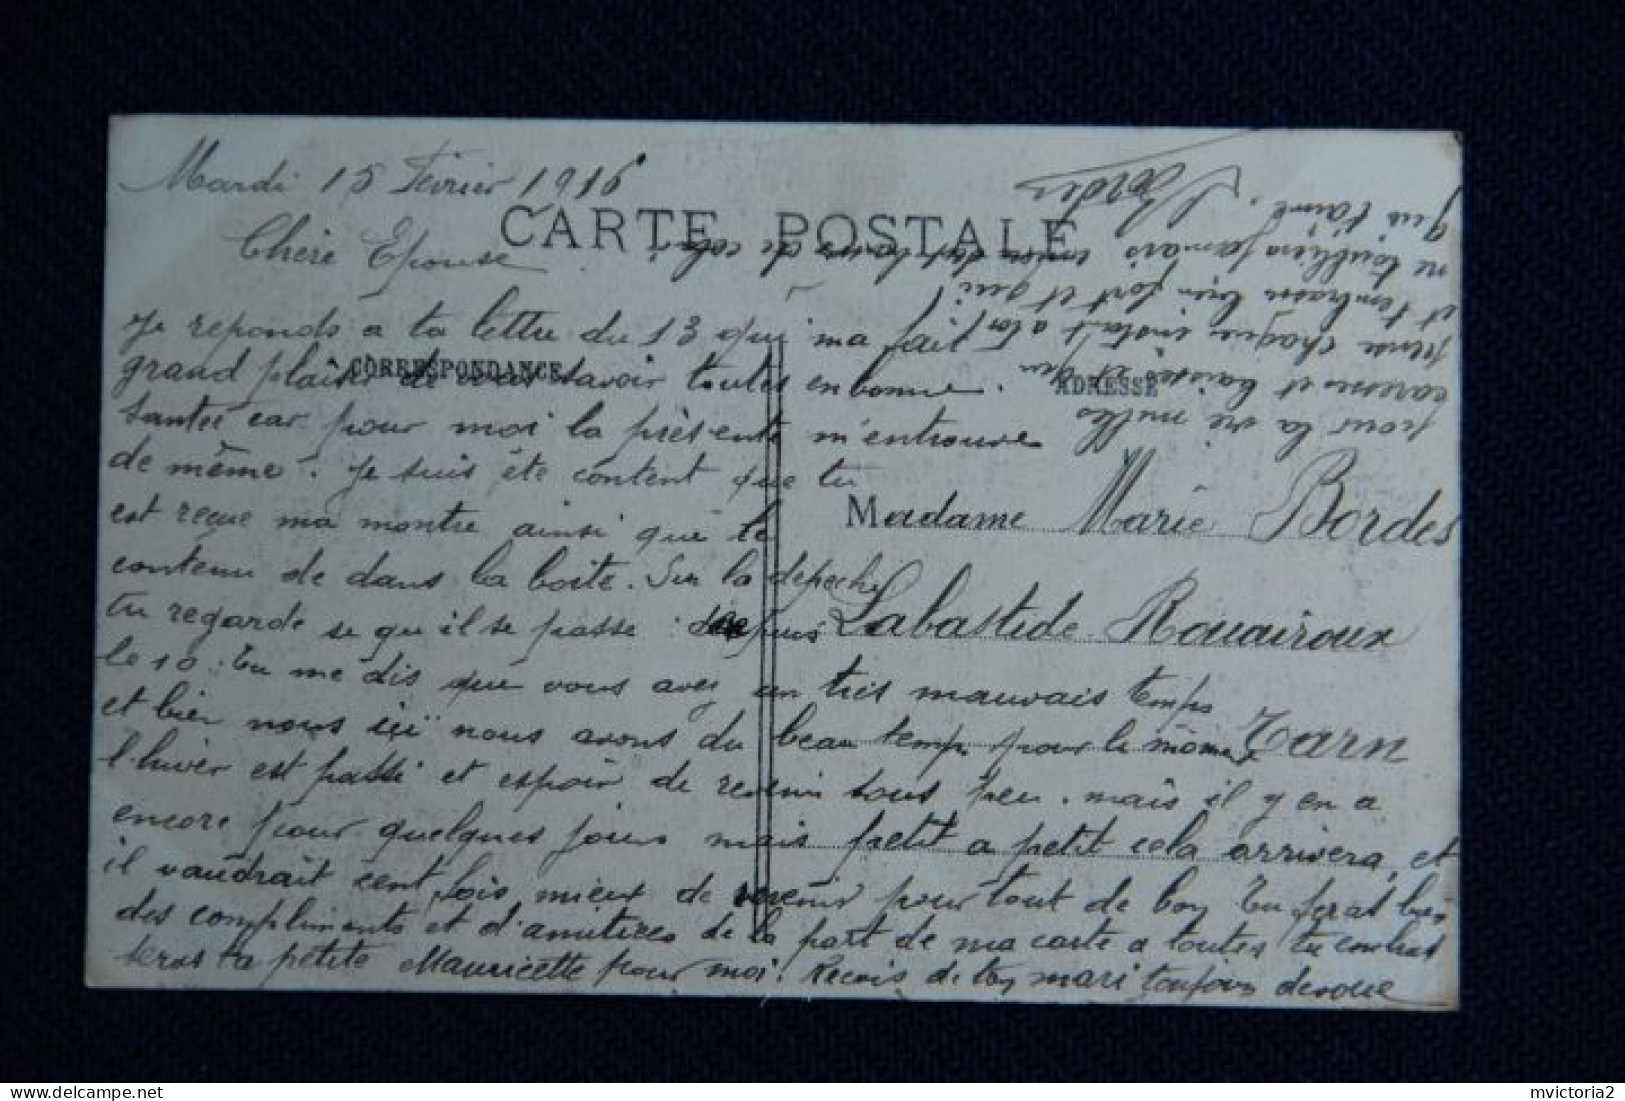 Mardi 15 Février 1916
CARTE POSTALE
Chère Epouse
Je reponds a ta lettre du 13 qui ma fait
CORRESPONDANCE
ADRESSE
grand plaisir de savoir toutes en bonne
santée car pour moi la présente m'entrouve
de même. Je suis éte content que tu
est reçue ma montre ainsi que le
contenu de dans la boite. Sur la depeche
tu regarde se qu'il se passe depuis
le 10. Tu me dis que vous avez un tres mauvais temps
et bien nous içi nous avons du beau temps pour le moment
l'hiver est passé et espoir de revenir sous peu. mais il y en a
encore pour quelques jours mais petit a petit cela arrivera, et
il vaudrait cent fois mieux de revenir pour tout de bon Tu feras bien
des compliments et d'amitiées de la part de ma carte a toutes tu embras
seras ta petite Mauricette pour moi. Recois de ton mari toujours devoué
pour la vie milles
caresses et baisers et qui
pense chaque instant a toi
et t'embrasse bien fort et qui
ne t'oubliera jamais de celui
qui t'aime.
Bordes
Madame Marie Bordes
Labastide Rouairoux
Tarn
mvictoria2